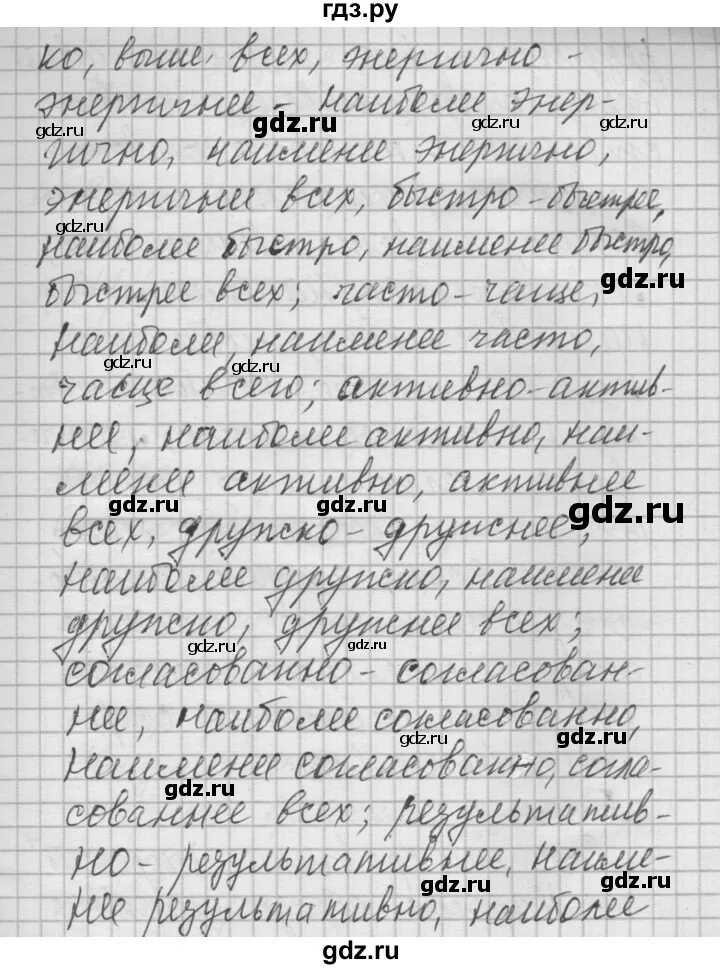 гдз.ру
ко, выше всех, энергично -
энергичнее - наиболее энер-
гично, наименее энергично,
энергичнее всех, быстро - быстрее,
наиболее быстро, наименее быстро,
быстрее всех; часто - чаще,
наиболее, наименее часто,
чаще всего; активно - актив-
нее, наиболее активно, наи-
менее активно, активнее
всех, дружно - дружнее,
наиболее дружно, наименее
дружно, дружнее всех;
согласованно - согласован-
нее, наиболее согласованно,
наименее согласованно, согла-
сованнее всех; результатив-
но - результативнее, наиме-
нее результативно, наиболее
gdz.ru